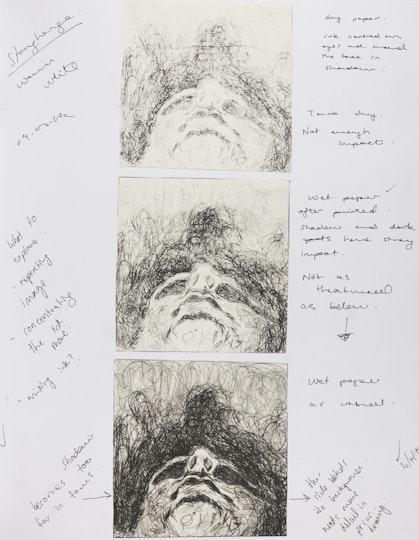 Stonehenge.
warm
white
dry paper.
ink centred on
eyes and around
the face in
shadow.
Too dry.
Not enough
impact.
Wet paper
after printed
shadow and dark
spots have strong
impact.
Not as
theatrical
as below.
Wet paper
as usual.
What to
explore
- repeating
image
- concentrating
the ink
more
- mixing ink?
shadow
becomes too
far in focus.
this
side
to background
need more
detail in
drawing